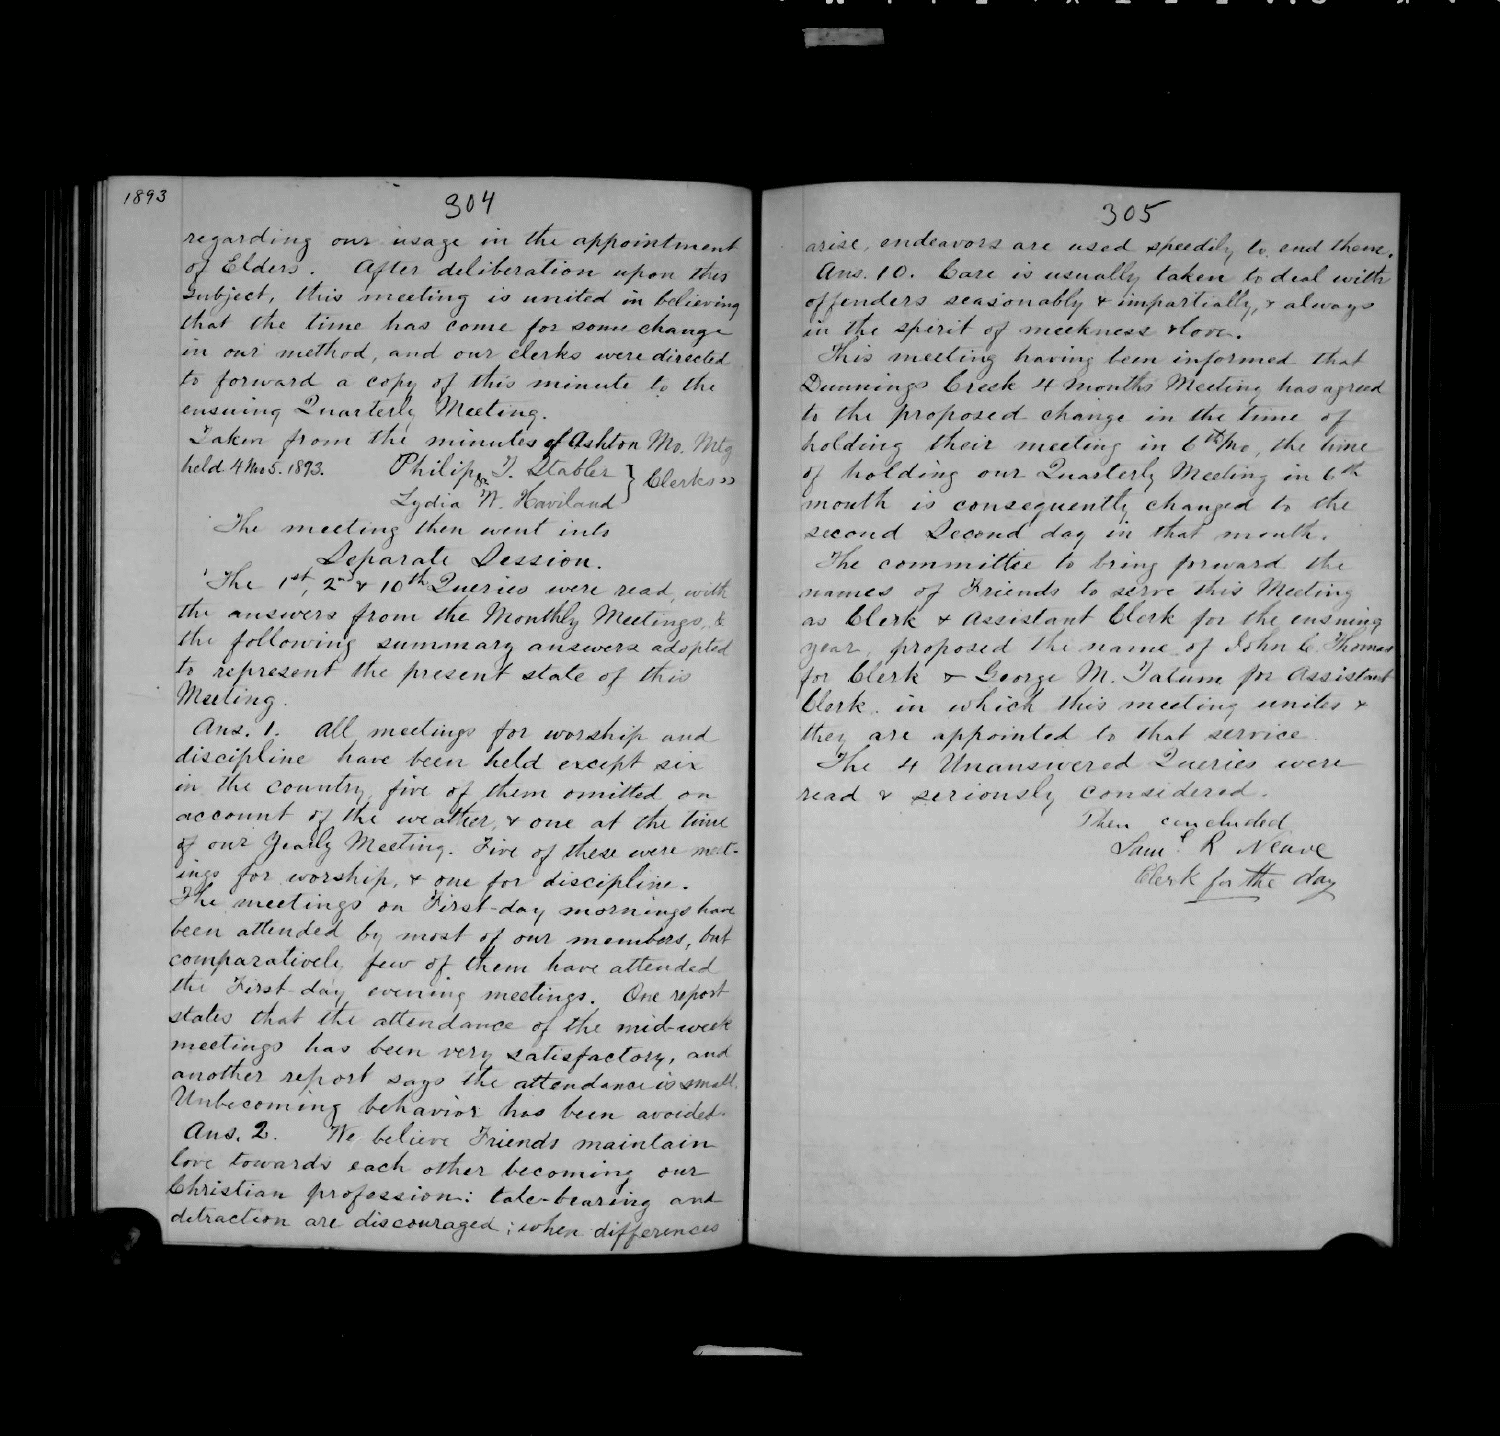 1893
304
regarding our usage in the appointment
of Elders. After deliberation upon this
subject, this meeting is united in believing
that the time has come for some change
in our method, and our clerks were directed
to forward a copy of this minute to the
ensuing Quarterly Meeting.
Taken from the minutes of Ashton Mo. Mtg
held 4 Mo 5. 1893. Philip T. Stabler } Clerks"
Lydia W. Haviland
The meeting then went into
Separate Session.
The 1st, 2nd & 10th Queries were read, with
the answers from the Monthly Meetings, &
the following summary answers adopted
to represent the present state of this
Meeting.
Ans. 1. All meetings for worship and
discipline have been held except six
in the country, five of them omitted on
account of the weather, & one at the time
of our Yearly Meeting. Five of these were meet-
ings for worship, & one for discipline.
The meetings on First-day mornings have
been attended by most of our members, but
comparatively few of them have attended
the First-day evening meetings. One report
states that the attendance of the mid-week
meetings has been very satisfactory, and
another report says the attendance is small.
Unbecoming behavior has been avoided.
Ans. 2. We believe Friends maintain
love towards each other becoming our
Christian profession: tale-bearing and
detraction are discouraged; when differences
305
arise, endeavors are used speedily to end them.
Ans. 10. Care is usually taken to deal with
offenders seasonably & impartially, & always
in the spirit of meekness & love.
This meeting having been informed that
Dunnings Creek 4 Months Meeting has agreed
to the proposed change in the time of
holding their meeting in 6th Mo, the time
of holding our Quarterly Meeting in 6th
month is consequently changed to the
second Second day in that month.
The committee to bring forward the
names of Friends to serve this Meeting
as Clerk & Assistant Clerk for the ensuing
year, proposed the name of John C. Thomas
for Clerk & George M. Tatum for Assistant
Clerk. in which this meeting unites &
they are appointed to that service.
The 4 Unanswered Queries were
read & seriously considered.
Then concluded
Saml R Neave
Clerk for the day